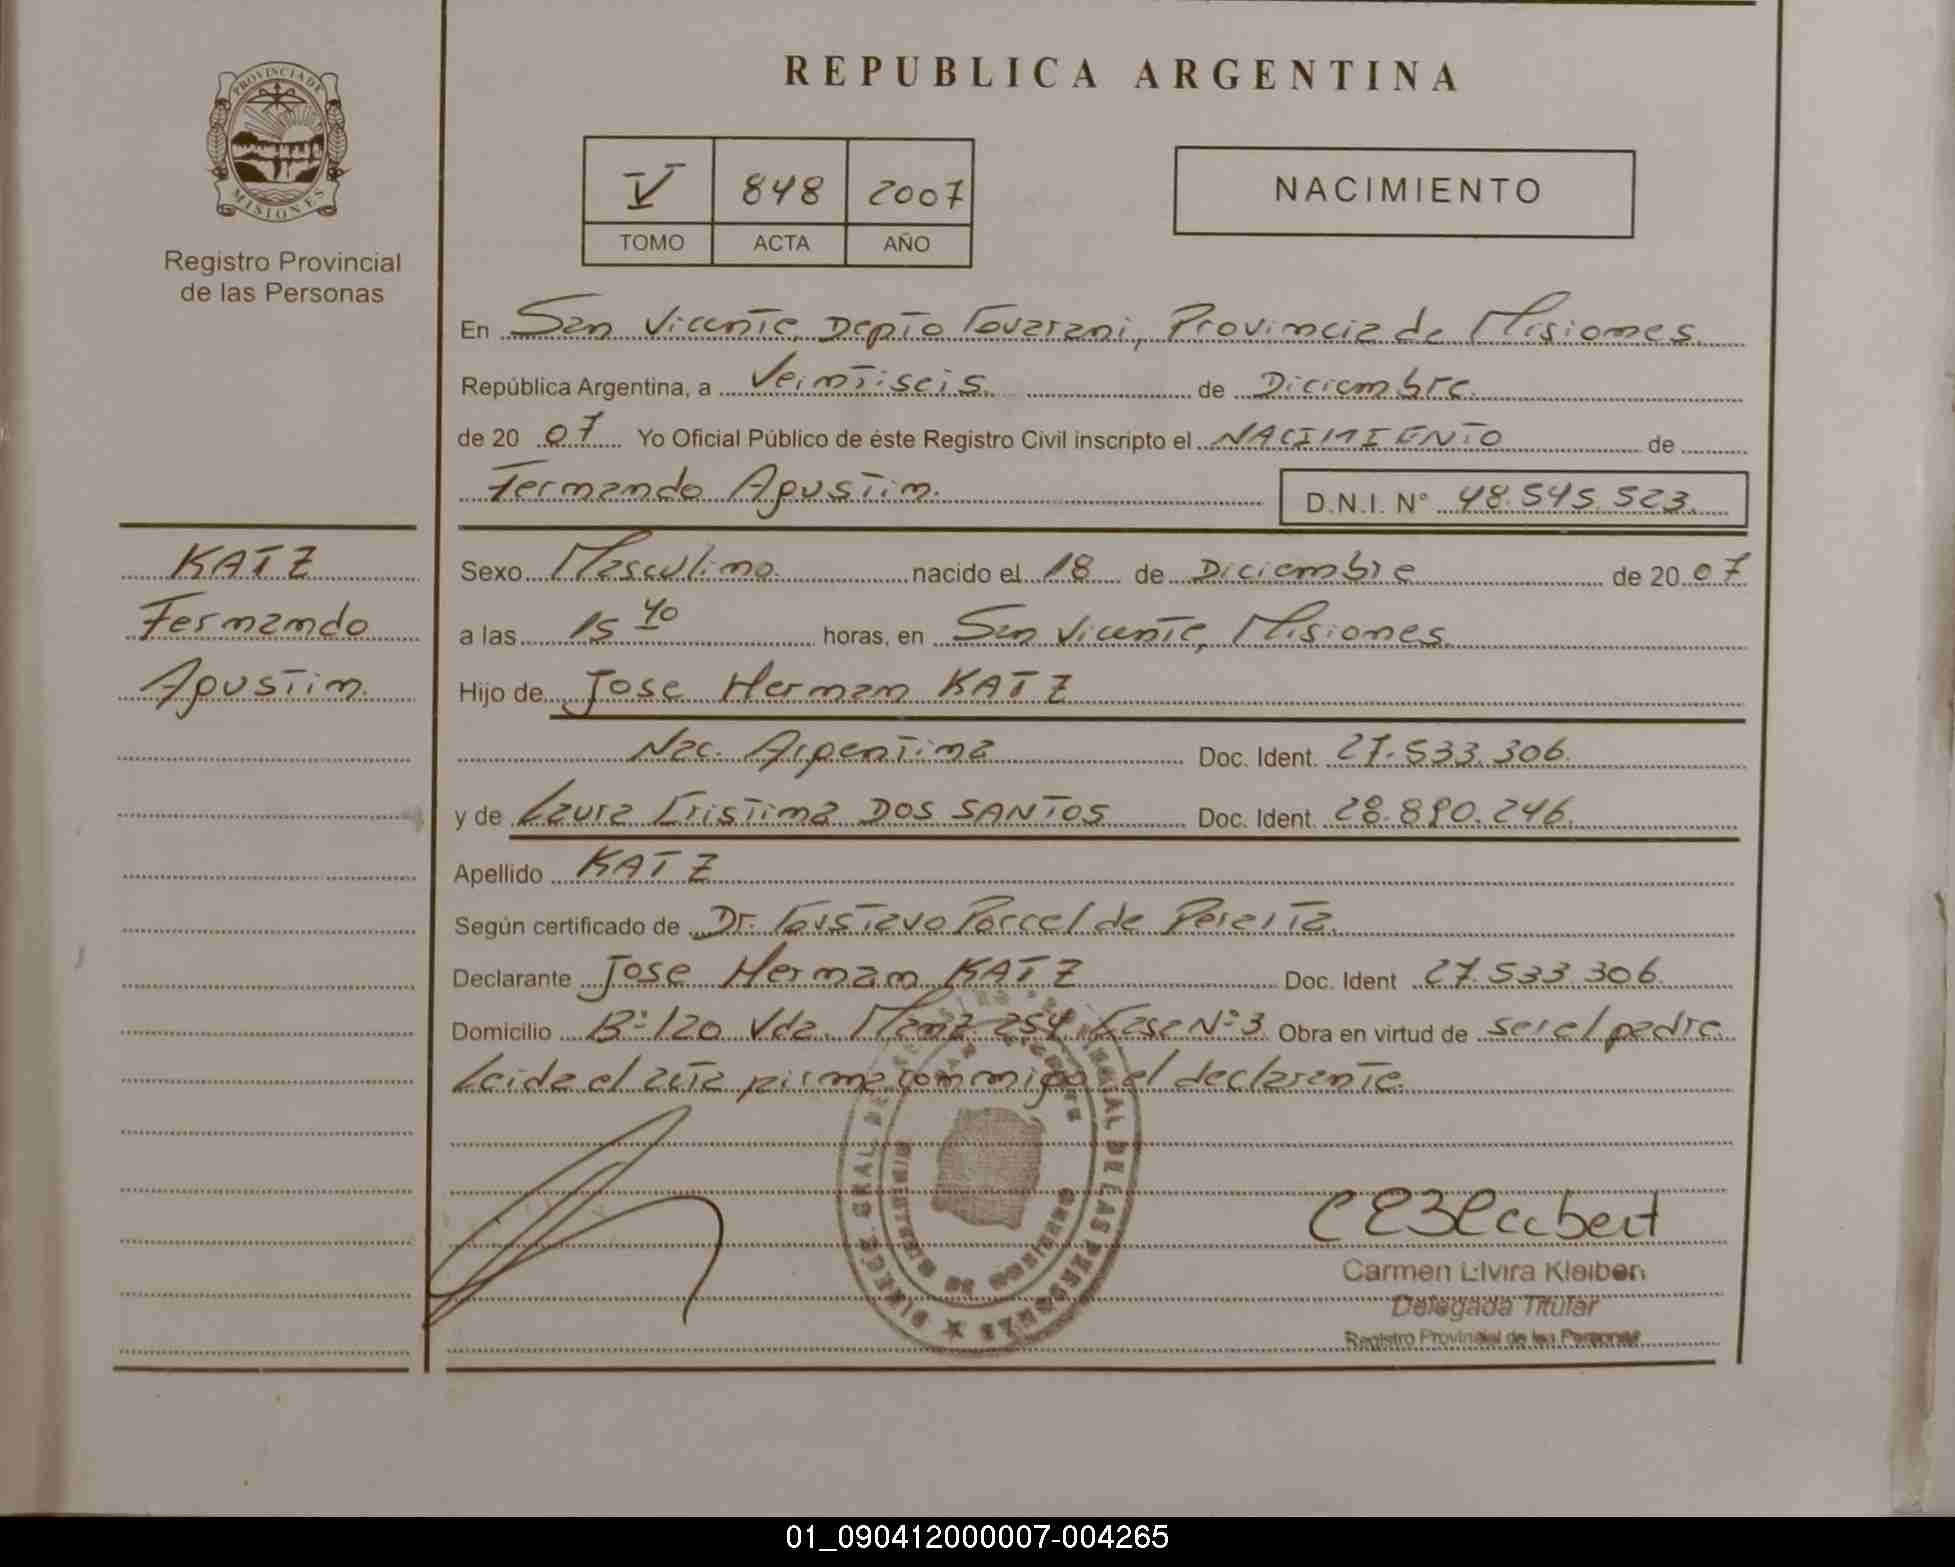 PROVINCIA DE
MISIONES
Registro Provincial
de las Personas
REPUBLICA ARGENTINA
V 848 2007
TOMO ACTA AÑO
NACIMIENTO
En San Vicente, Depto Guarani, Provincia de Misiones.
República Argentina, a Veintiseis. de Diciembre.
de 20 07 Yo Oficial Público de éste Registro Civil inscripto el NACIMIENTO de
Fernando Agustin. D.N.I. N° 48.545.523.
KATZ
Fernando
Agustin.
Sexo Masculino. nacido el 18 de Diciembre de 20 07
a las 15 40 horas, en San Vicente, Misiones.
Hijo de Jose Hernan KATZ
Nac. Argentina Doc. Ident. 27.533.306.
y de Laura Cristina DOS SANTOS Doc. Ident. 28.890.246.
Apellido KATZ
Según certificado de Dr. Gustavo Porcel de Peralta.
Declarante Jose Hernan KATZ Doc. Ident 27.533.306.
Domicilio B° 120 Vdas. Manz 254 Casa N° 3 Obra en virtud de ser el padre.
Leida el acta firma conmigo el declarante.
Carmen Elvira Kleibert
Delegada Titular
Registro Provincial de las Personas
01_090412000007-004265